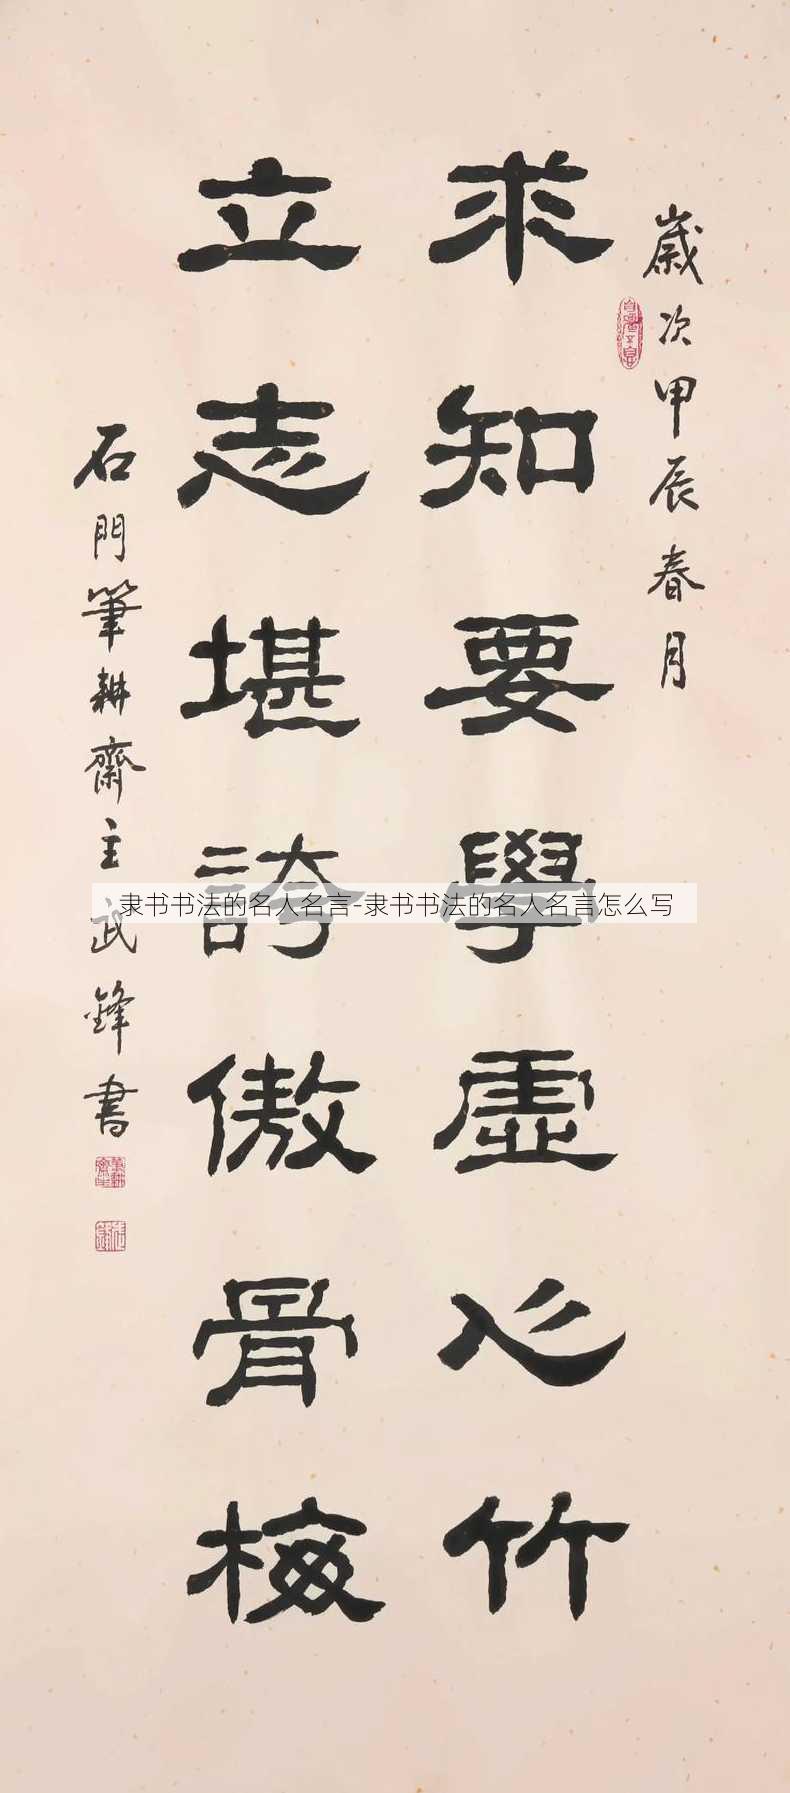 歲次甲辰春月
求知要學虛心竹
立志堪誇傲骨梅
石門筆耕齋主武鋒書
隶书书法的名人名言-隶书书法的名人名言怎么写